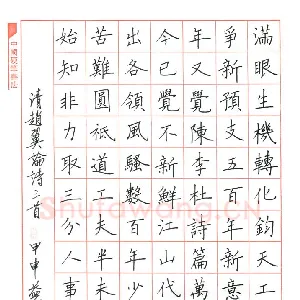 滿眼生機轉化鈞天工
爭新預支五百年新意
年又覺陳李杜詩篇萬
今已覺不新鮮江山代
出各領風騷數百年少
苦難圓祇道工夫半未
始知非力取三分人事
清趙翼論詩三首 甲申
Shufawang.CN